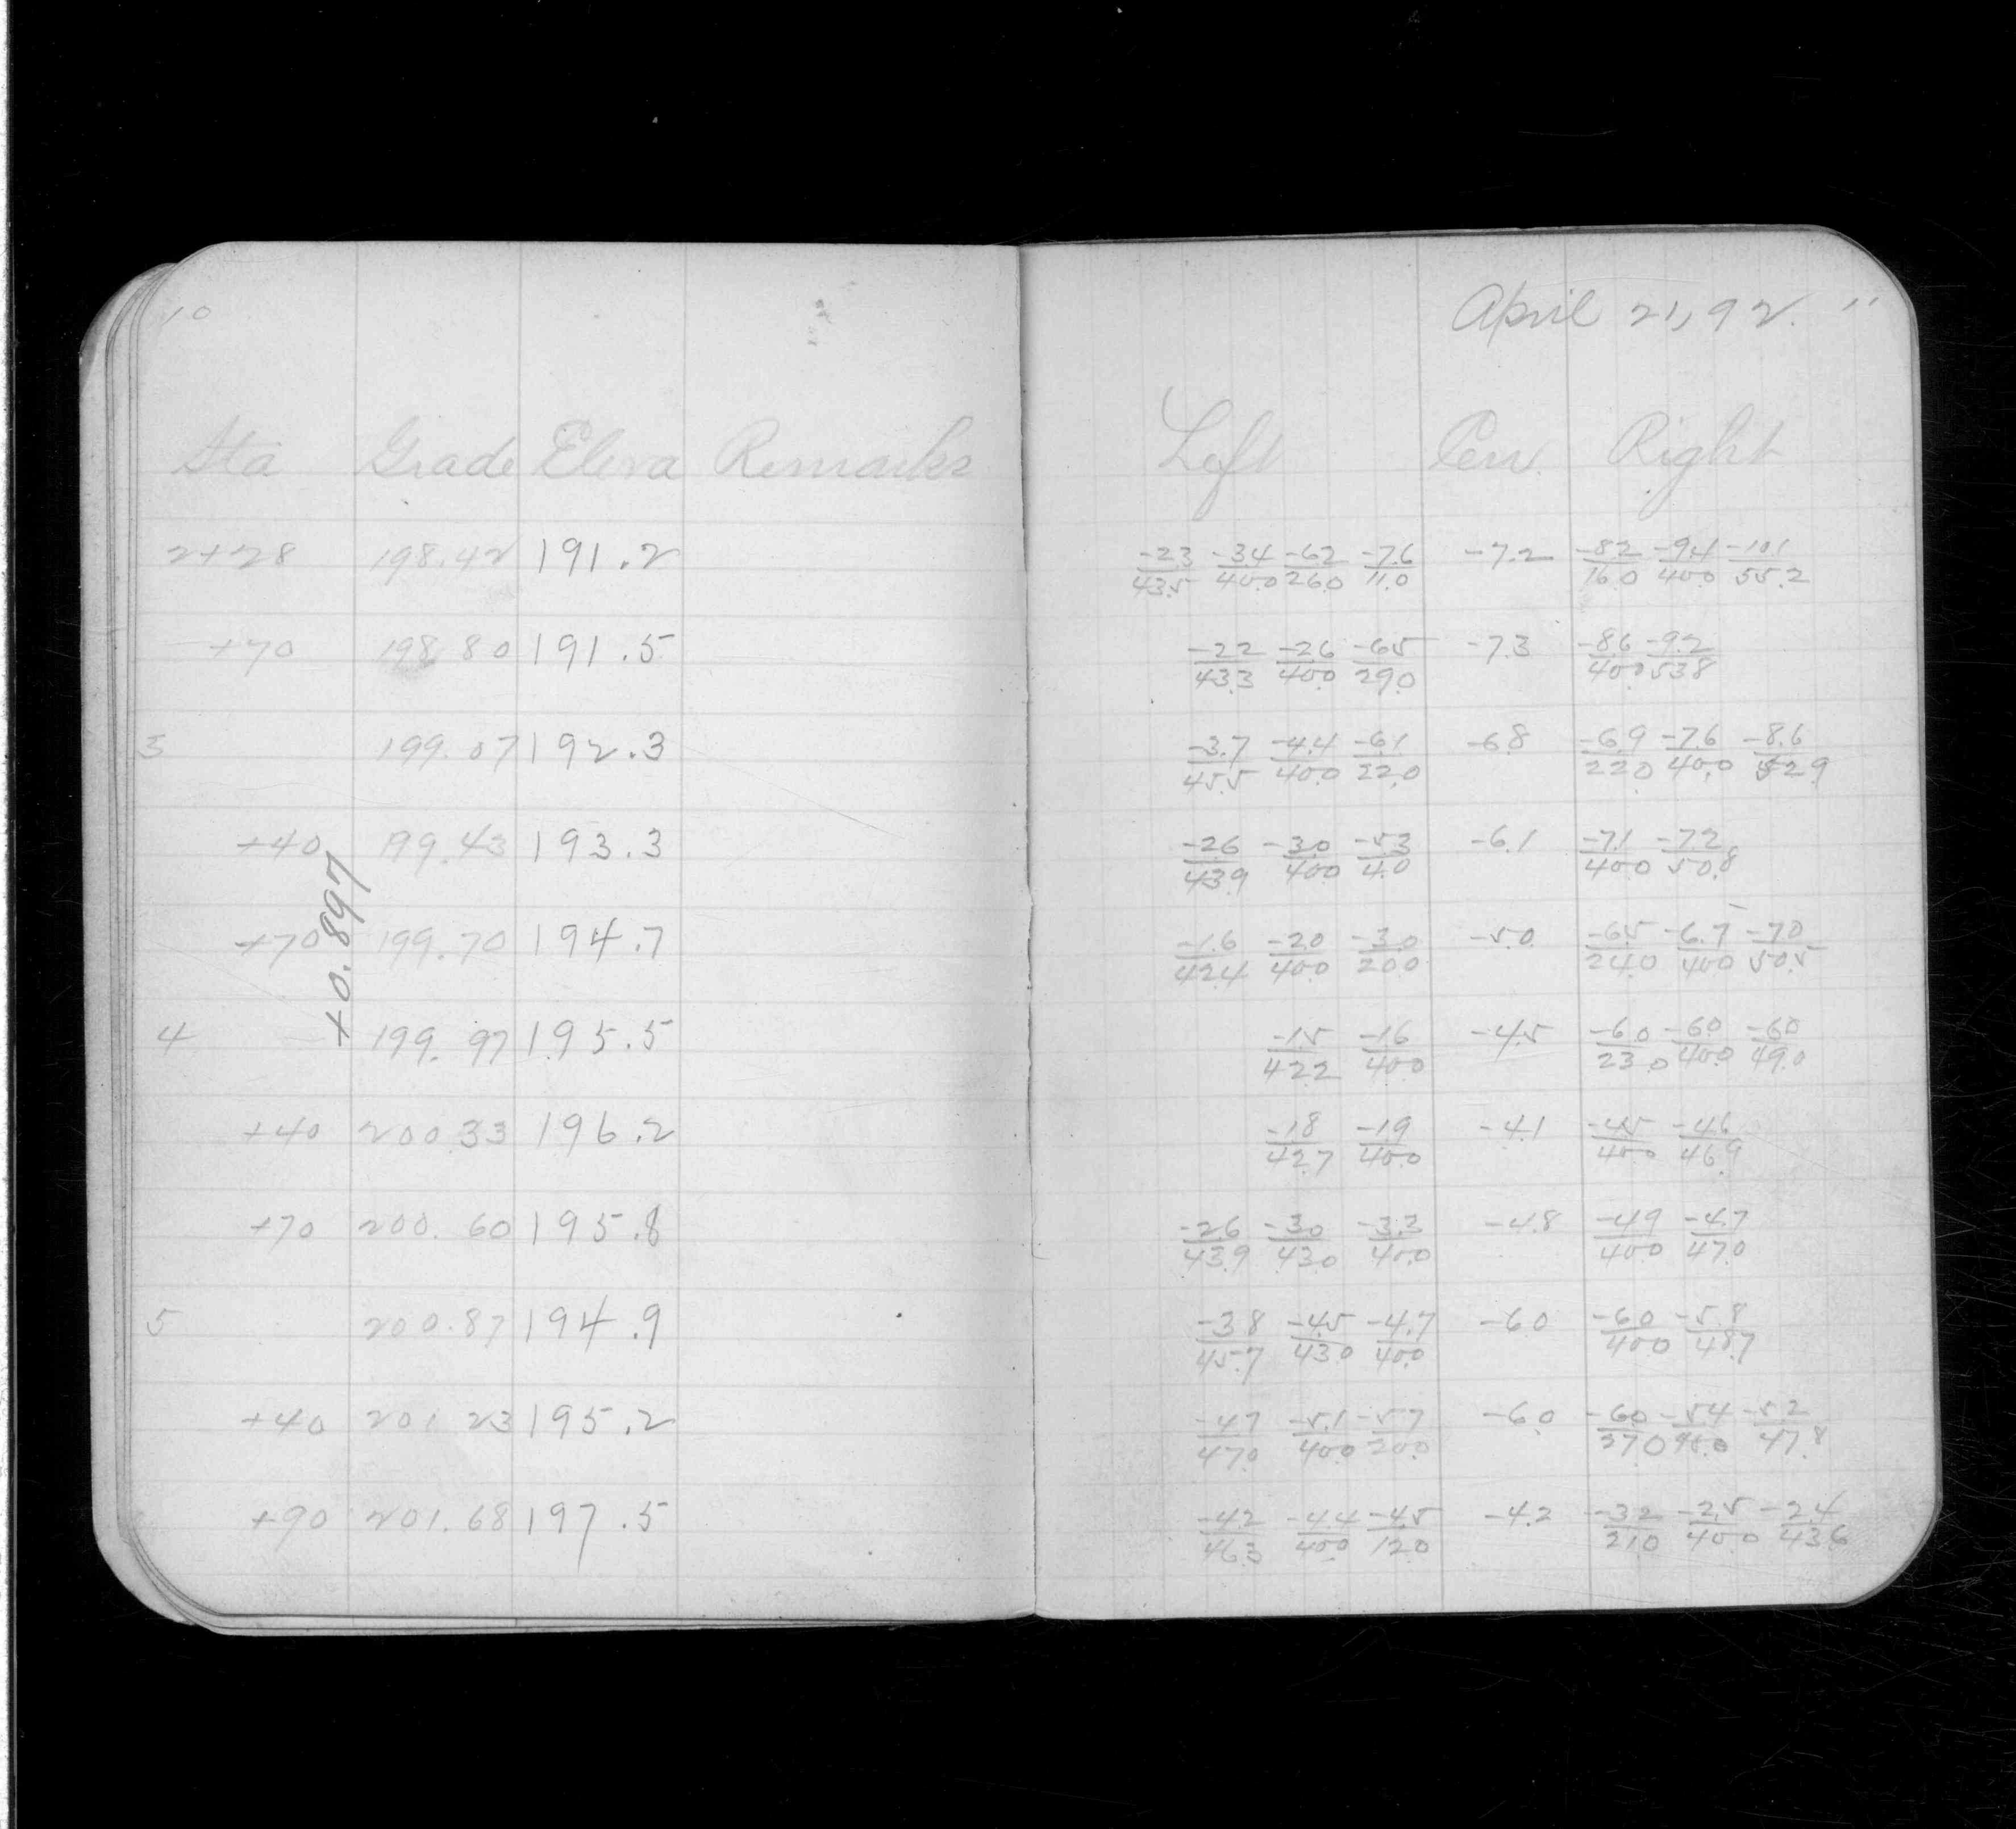 10
April 21, 92. 11
Sta Grade Eleva Remarks Left Cen. Right
2+28 198.42 191.2 -2.3/43.5 -3.4/40.0 -6.2/26.0 -7.6/11.0 -7.2 -8.2/16.0 -9.4/40.0 -10.1/55.2
+70 198.80 191.5 -2.2/43.3 -2.6/40.0 -6.5/29.0 -7.3 -8.6/40.0 -9.2/53.8
3 199.07 192.3 -3.7/45.5 -4.4/40.0 -6.1/22.0 -6.8 -6.9/22.0 -7.6/40.0 -8.6/52.9
+40 199.43 193.3 -2.6/43.9 -3.0/40.0 -5.3/4.0 -6.1 -7.1/40.0 -7.2/50.8
+70 199.70 194.7 -1.6/42.4 -2.0/40.0 -3.0/20.0 -5.0 -6.5/24.0 -6.7/40.0 -7.0/50.5
+0.897
4 199.97 195.5 -1.5/42.2 -1.6/40.0 -4.5 -6.0/23.0 -6.0/40.0 -6.0/49.0
+40 200.33 196.2 -1.8/42.7 -1.9/40.0 -4.1 -4.5/40.0 -4.6/46.9
+70 200.60 195.8 -2.6/43.9 -3.0/43.0 -3.3/40.0 -4.8 -4.9/40.0 -4.7/47.0
5 200.87 194.9 -3.8/45.7 -4.5/43.0 -4.7/40.0 -6.0 -6.0/40.0 -5.8/48.7
+40 201.23 195.2 -4.7/47.0 -5.1/40.0 -5.7/20.0 -6.0 -6.0/37.0 -5.4/40.0 -5.2/47.8
+90 201.68 197.5 -4.2/46.3 -4.4/40.0 -4.5/12.0 -4.2 -3.2/21.0 -2.5/40.0 -2.4/43.6